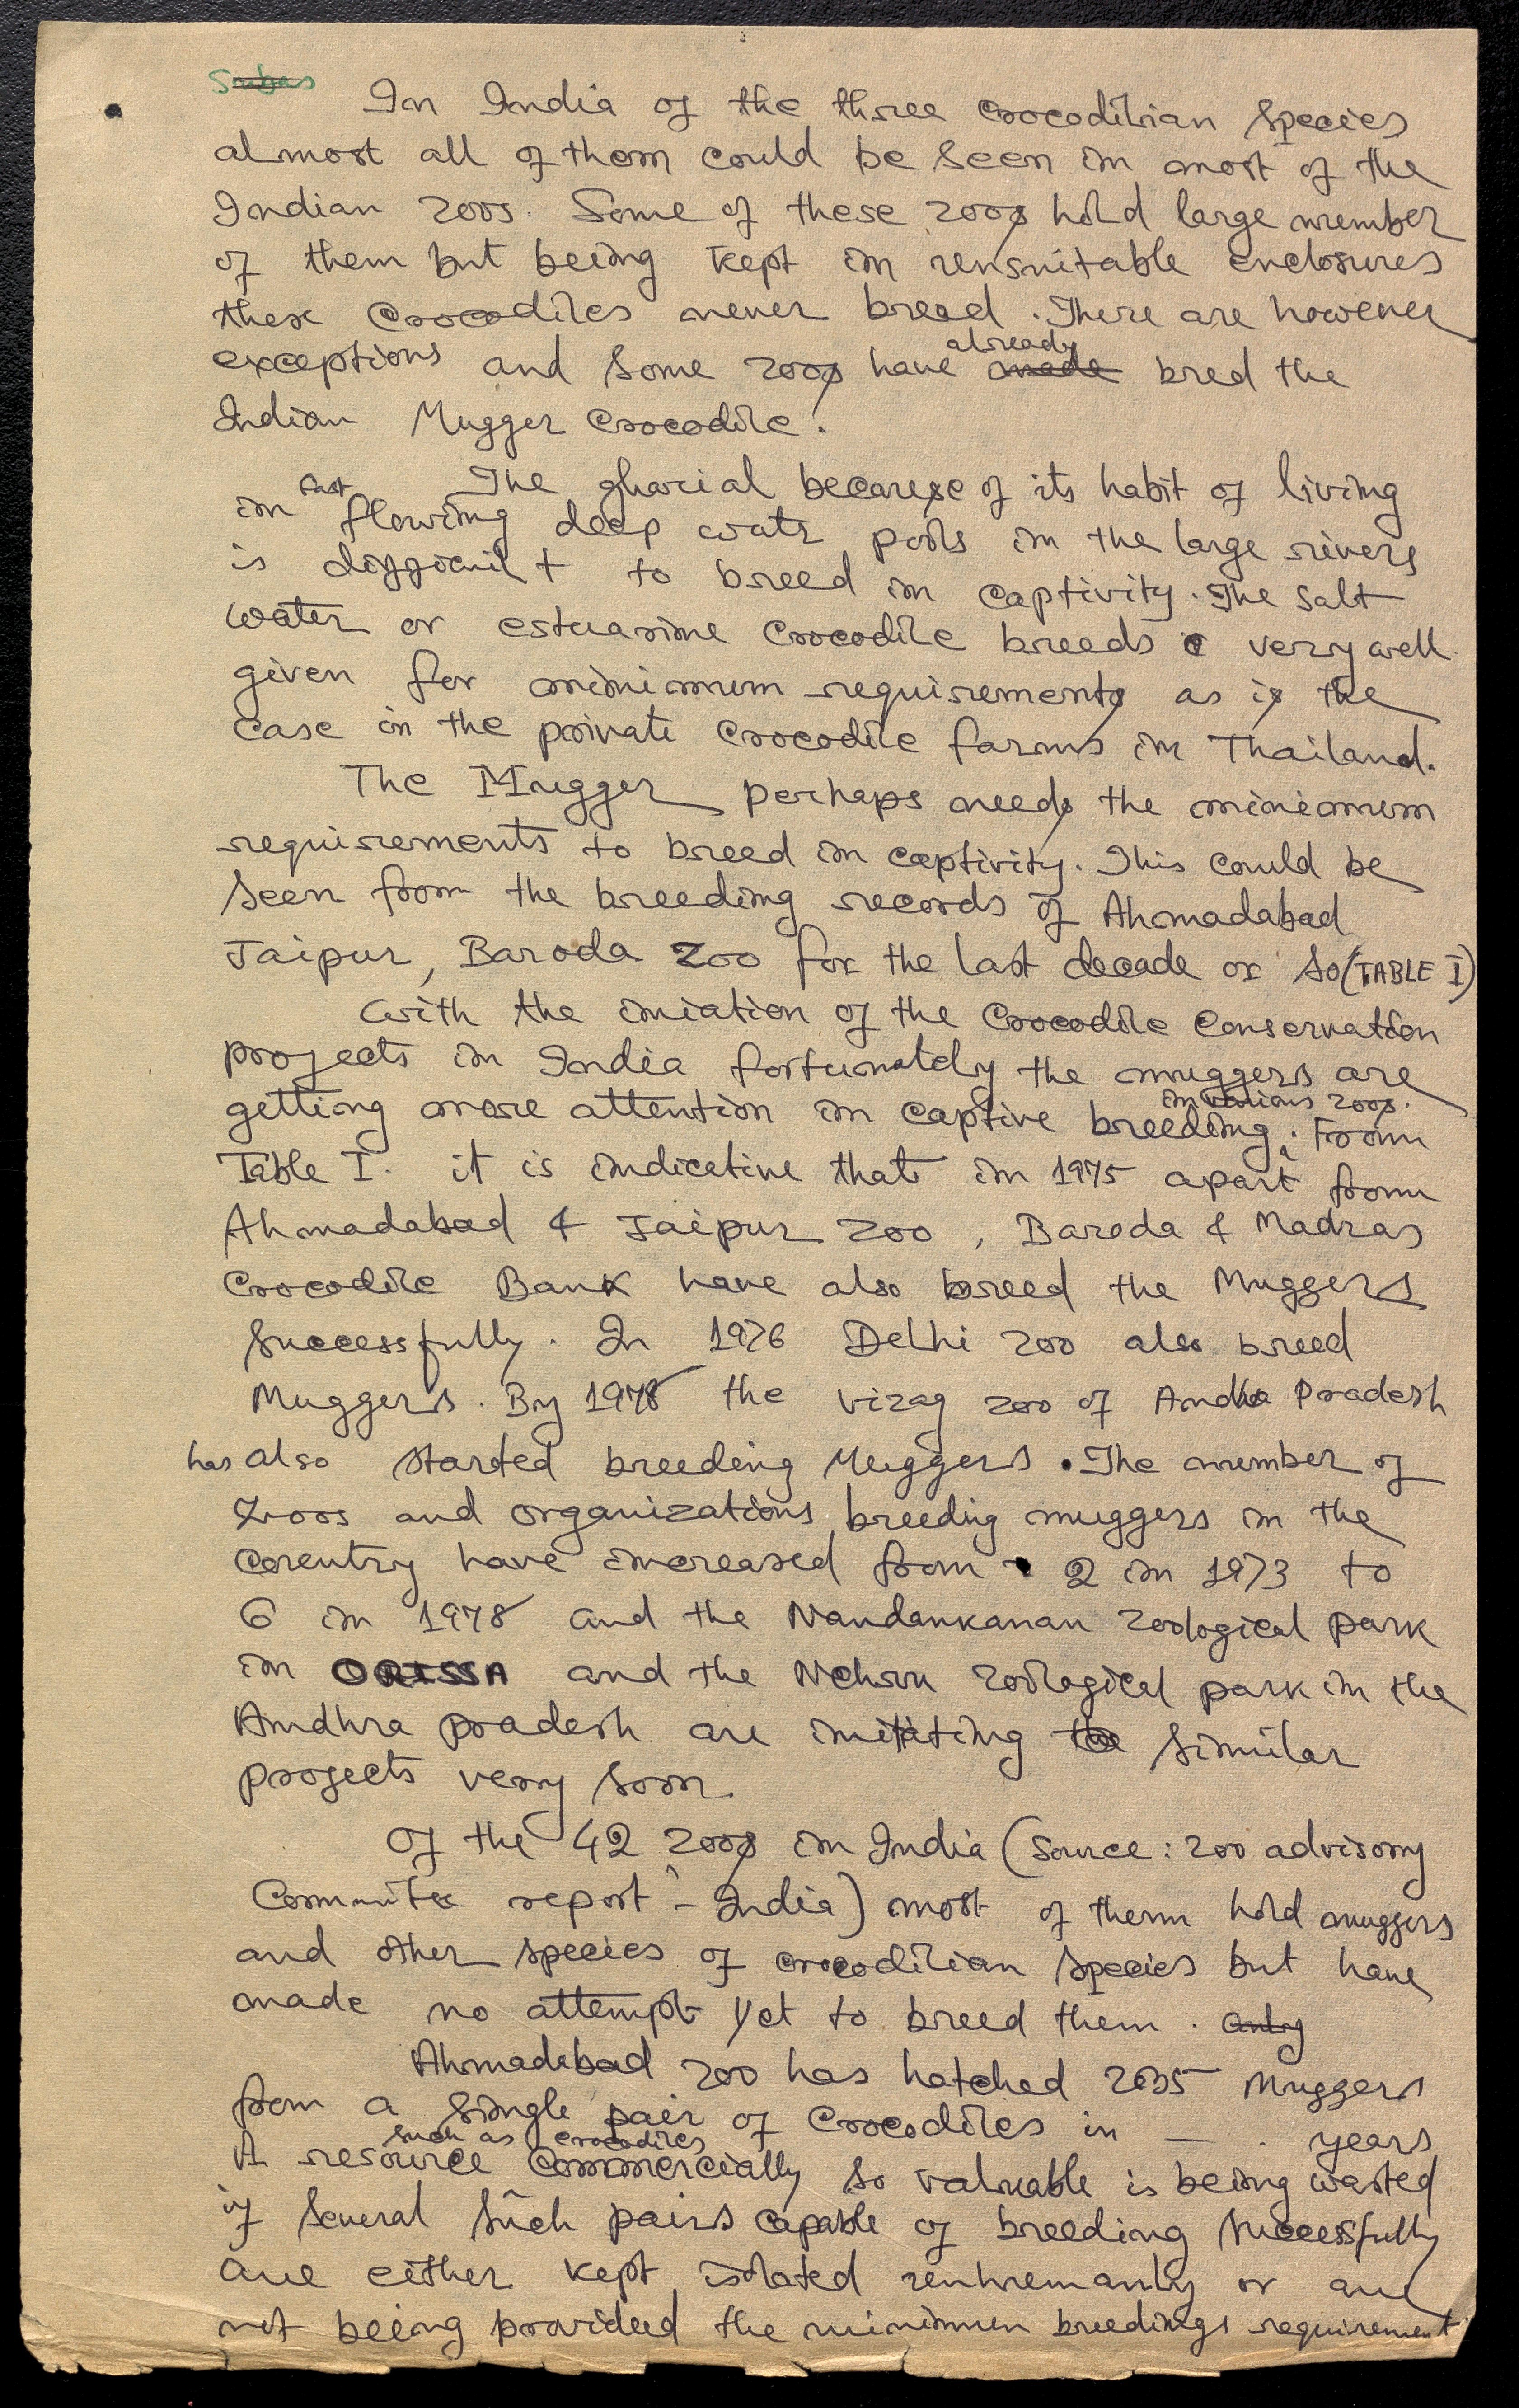 Subas
In India of the three crocodilian species
almost all of them could be seen in most of the
Indian zoos. Some of these zoos hold large number
of them but being kept in unsuitable enclosures
these crocodiles never breed. There are however
exceptions and some zoos have already made bred the
Indian Mugger Crocodile.
The gharial because of its habit of living
in fast flowing deep watr pools in the large rivers
is difficult to breed in captivity. The salt
water or estuarine crocodile breeds very well
given for minimum requirements as is the
case in the private crocodile farms in Thailand.
The Mugger perhaps needs the minimum
requirements to breed in captivity. This could be
seen from the breeding records of Ahmadabad
Jaipur, Baroda zoo for the last decade or so (TABLE I)
With the iniation of the Crocodile Conservation
projects in India fortunately the muggers are
getting more attention in captive breeding in various zoos. From
Table I. it is indicative that in 1975 apart from
Ahmadabad & Jaipur zoo, Baroda & Madras
Crocodile Bank have also breed the Muggers
successfully. In 1976 Delhi zoo also breed
Muggers. By 1978 the vizag zoo of Andhra Pradesh
has also started breeding Muggers. The number of
zoos and organizations breeding muggers in the
country have increased from 2 in 1973 to
6 in 1978 and the Nandankanan zoological park
in ORISSA and the Nehru zoological park in the
Andhra pradesh are initating the similar
projects very soon.
Of the 42 zoos in India (Source: zoo advisory
Committe report - India) most of them hold muggers
and other species of crocodilian species but have
made no attempt yet to breed them. only
Ahmadabad zoo has hatched muggers
from a single pair of Crocodiles in — . years
A resource such as crocodiles commercially so valuable is being wasted
if several such pairs capable of breeding successfully
are either kept isolated or are
not being provided the minimum breedings requirement